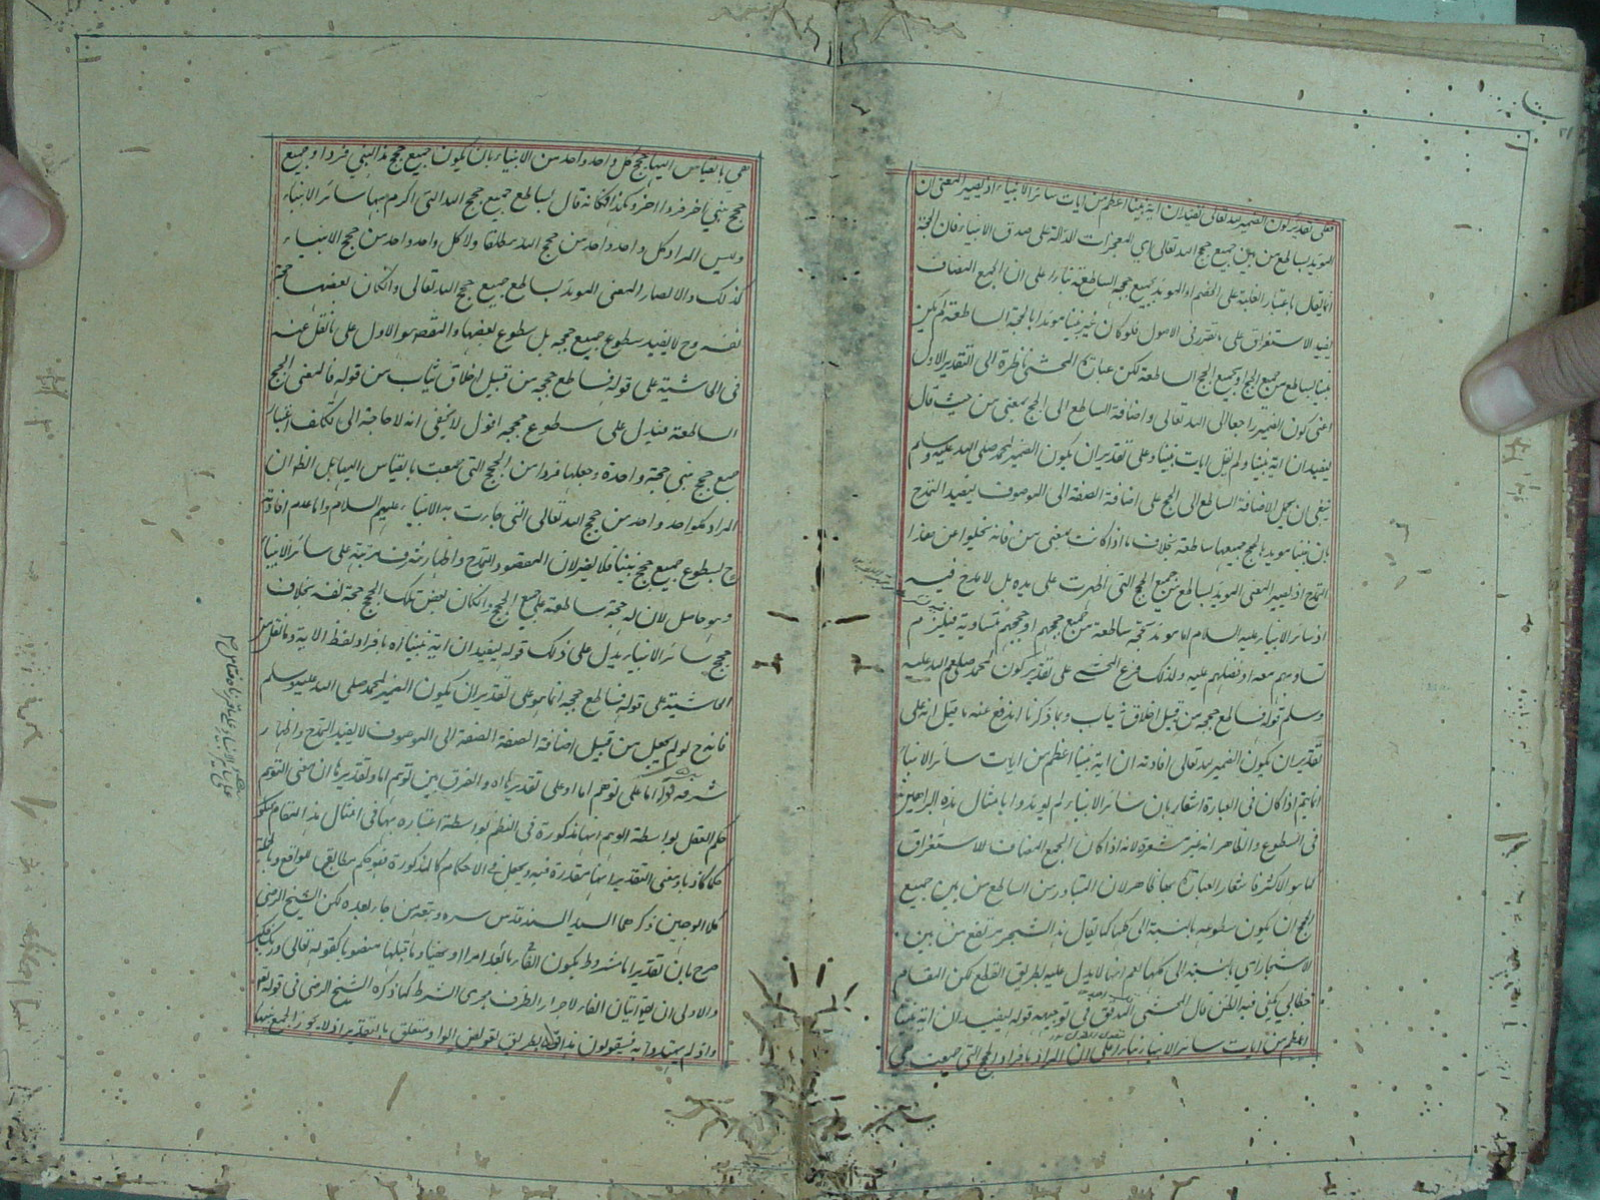 فعلى تقدير كون الضمير لله تعالى يفيد ان آية نبينا اعظم من آيات سائر الانبياء اذ يصير المعنى ان
المويد بساطع من بين جميع حجج الله تعالى اي المعجزات الدالة على صدق الانبياء فان الحجة
انما يقال باعتبار الغلبة على الخصم او المويد بجميع حججه الساطعة بناء على ان الجمع المضاف
يفيد الاستغراق على ما تقرر فى الاصول فلو كان غير نبينا مويدا بالحجة الساطعة لم يكن
نبينا بساطع من جميع الحجج او بجميع الحجج الساطعة لكن عبارة المحشي ناظرة الى التقدير الاول
اعنى كون الضمير راجعا الى الله تعالى واضافة الساطع الى الحجج بمعنى من حيث قال
ليفيد ان آية نبينا ولم يقل آيات نبينا وعلى تقدير ان يكون الضمير لمحمد صلى الله عليه وسلم
ينبغى ان يحمل الاضافة الساطع الى الحجج على اضافة الصفة الى الموصوف ليفيد التمدح
بان نبينا مويد بالحجج جميعها ساطعة بخلاف ما اذا كانت بمعنى من فانه يخلوا عن هذا
التمدح اذ يصير المعنى المويد بساطع من جميع الحجج التى اظهرت على يده بل لا مدح فيه
اذ سائر الانبياء عليه السلام اما مويد بحجة ساطعة من جميع حججهم او حججهم متساوية فيلزم
تساويهم معه او فضلهم عليه ولذلك فرع المحشي على تقدير كون لمحمد صلى الله عليه
وسلم قوله فساطع حججه من قبيل اخلاق ثياب وبما ذكرنا اندفع عنه ما قيل انه على
تقدير ان يكون الضمير لله تعالى افادته ان آية نبينا اعظم من آيات سائر الانبياء
انما يتم اذا كان فى العبارة اشعار بان سائر الانبياء لم يويدوا بامثال هذه البراهين
فى السطوع والظاهر انه غير مشعرة لانه اذا كان الجمع المضاف للاستغراق
كما هو الاكثر فاشعار العبارة بها ظاهر لان المتبادر من الساطع من بين جميع
الحجج ان يكون سطوعه بالنسبة الى كلها كما يقال هذا الشجر مرتفع من بين
الاشجار اي بالنسبة الى كلها نعم انها لا يدل عليه بطريق القطع لكن المقام
خطابي يكفى فيه الظن قال المحشى المدقق فى توجيهه قوله ليفيد ان آية نبينا
اعظم من آيات سائر الانبياء بناء على ان المراد بافراد الحجج التى جمعت هي
هى بالقياس اليها حجج كل واحد واحد من الانبياء بان يكون جميع حجج هذا النبي فردا وجميع
حجج نبي آخر فردا آخر وهكذا فكانه قال بساطع جميع حجج الله التى اكرم بها سائر الانبياء
وليس المراد كل واحد واحد من حجج الله مطلقا ولا كل واحد واحد من حجج الانبياء
كذلك والا لصار المعنى المويد بساطع جميع حجج الله تعالى وان كان بعضها حجة
نفسه وح لا يفيد سطوع جميع حججه بل سطوع بعضها والمقصود هو الاول على ما نقل عنه
فى الحاشية على قوله فساطع حججه من قبيل اخلاق ثياب من قوله فالمعنى الحجج
الساطعة فيدل على سطوع حججه اقول لا يخفى انه لا حاجة الى تكلف اعتبار
جميع حجج نبي حجة واحدة وجعلها فردا من الحجج التى جمعت بالقياس اليها بل الظ ان
المراد بكل واحد واحد من حجج الله تعالى التى جاءت به الانبياء عليهم السلام واما عدم افادته
ح لسطوع جميع حجج نبينا فلا يضر لان المقصود التمدح واظهار شرف مرتبته على سائر الانبياء
وهو حاصل لان له حجة ساطعة على جميع الحجج وان كان بعض تلك الحجج حجة نفسه بخلاف
حجج سائر الانبياء يدل على ذلك قوله ليفيد ان آية نبينا اه بافراد لفظ الآية وما نقل من
الحاشية على قوله فساطع حججه انما هو على تقدير ان يكون الضمير لمحمد صلى الله عليه وسلم
فانه ح لو لم يجعل من قبيل اضافة الصفة الصفة الى الموصوف لا يفيد التمدح واظهار
شرفه قوله اما على توهم اما او على تقديرها اه والفرق بين توهم اما وتقديرها ان معنى التوهم
حكم العقل بواسطة الوهم انها مذكورة فى النظم بواسطة اعتباره بها فى امثال هذا المقام
حكما كاذبا ومعنى التقدير انها مقدرة فيه ويجعل في الاحكام كالمذكورة فهو حكم مطابق للواقع وبالجملة
كلا الوجهين ذكرهما السيد السند قدس سره وتبعه من جاء بعده لكن الشيخ الرضى
صرح بان تقدير اما مشروط بكون الفاء ما بعد امرا او نهيا وما قبلها منصوبا كقوله تعالى وربك فكبر
والاولى ان يقال اتيان الفاء لاجراء الظرف مجرى الشرط كما ذكره الشيخ الرضى فى قوله تعالى
واذ لم يهتدوا به فسيقولون هذا افك بطريق تعويض الواو متعلق بالتقدير اذ لا يجوز الجمع بينها